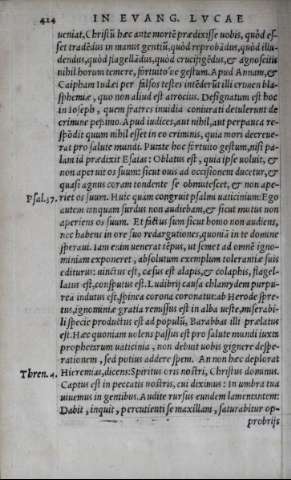 424 IN EVANG. LVCAE
ueniat. Christũ hæc ante mortẽ prædixisse uobis, quòd es-
set tradẽdus in manus gentiũ, quòd reprobãdus, quòd illu-
dendus, quòd flagellãdus, quòd crucifigẽdus, & agnoscitis
nihil horum temere, fortuito ue gestum. Apud Annam, &
Caipham Iudæi per falsos testes intẽderũt illi crimen bla-
sphemiæ, quo non aliud est atrocius. Designatum est hoc
in Ioseph, quem fratres inuidia coniurati detulerunt de
crimine pessimo. Apud iudices, aut nihil, aut perpauca re-
spõdit quum nihil esset in eo criminis, quia mori decreue-
rat pro salute mundi. Putate hoc fortuito gestum, nisi pa-
lam id prædixit Esaias: Oblatus est, quia ipse uoluit, &
non aperuit os suum: sicut ouis ad occisionem ducetur, &
quasi agnus coram tondente se obmutescet, & non ape-
Psal.37. riet os suum. Huic quàm congruit psalmi uaticinium: Ego
autem tanquam surdus non audiebam, & sicut mutus non
aperiens os suum. Et factus sum sicut homo non audiens,
nec habens in ore suo redargutiones, quoniã in te domine
speraui. Iam enim uenerat tẽpus, ut semet ad omnẽ igno-
miniam exponeret, absolutum exemplum tolerantiæ suis
æditurus: uinctus est, cæsus est alapis, & colaphis, flagel-
latus est, consputus est. Ludibrij causa chlamydem purpu-
rea indutus est, spinea corona coronatus: ab Herode spre-
tus, ignominiæ gratia remissus est in alba ueste, miserabi-
li specie productus est ad populũ, Barabbas illi prælatus
est. Hæc quoniam uolens passus est pro salute mundi iuxta
prophetarum uaticinia, non debuit uobis gignere despe-
rationem, sed potius addere spem. An non hæc deplorat
Thren.4. Hieremias, dicens: Spiritus oris nostri, Christus dominus.
Captus est in peccatis nostris, cui diximus: In umbra tua
uiuemus in gentibus. Audite rursus eundem lamentantem:
Dabit, inquit, percutienti se maxillam, saturabitur op-
probrijs